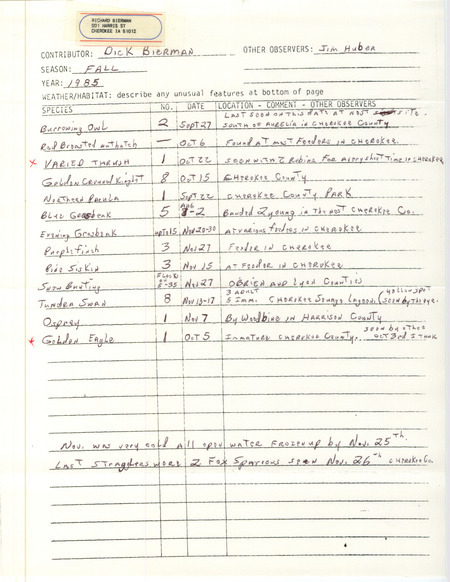 RICHARD BIERMAN
501 HARRIS ST
CHEROKEE IA 51012
CONTRIBUTOR: DICK BIERMAN OTHER OBSERVERS: JIM HUBER
SEASON: FALL
YEAR: 1985
WEATHER/HABITAT: describe any unusual features at bottom of page
SPECIES NO. DATE LOCATION - COMMENT - OTHER OBSERVERS
Last seen on this date at nest site.
Burrowing Owl 2 Sept 27 South of Aurelia in Cherokee County
Red Breasted nuthatch — Oct 6 Found at most Feeders in Cherokee
x VARIED THRUSH 1 Oct 22 Seen with 2 Robins For a very short Time in Cherokee
Golden Crowned Kinglet 8 Oct 15 Cherokee County
Northern Parula 1 Sept 22 Cherokee County Park
Blue Grosbeak 5 Aug 2 Banded 2 young in Cherokee Co.
Evening Grosbeak up to 15 Nov 20-30 At various Feeders in Cherokee
Purple finch 3 Nov 27 Feeder in Cherokee
Pine Siskin 3 Nov 15 At Feeder in Cherokee
Snow Bunting Flocks 35 Nov 27 O'Brien and Lyon Counties
3 adult yellow spot
Tundra Swan 8 Nov 13-17 5 Imm. Cherokee Sewage Lagoon (seen by the eye.
Osprey 1 Nov 7 By Woodbine in Harrison County
seen by other
x Golden Eagle 1 Oct 5 Immature Cherokee County, Oct 3rd I think
Nov. was very cold all open water frozen up by Nov. 25th.
Last stragglers were 2 Fox Sparrows seen Nov. 26th Cherokee Co.